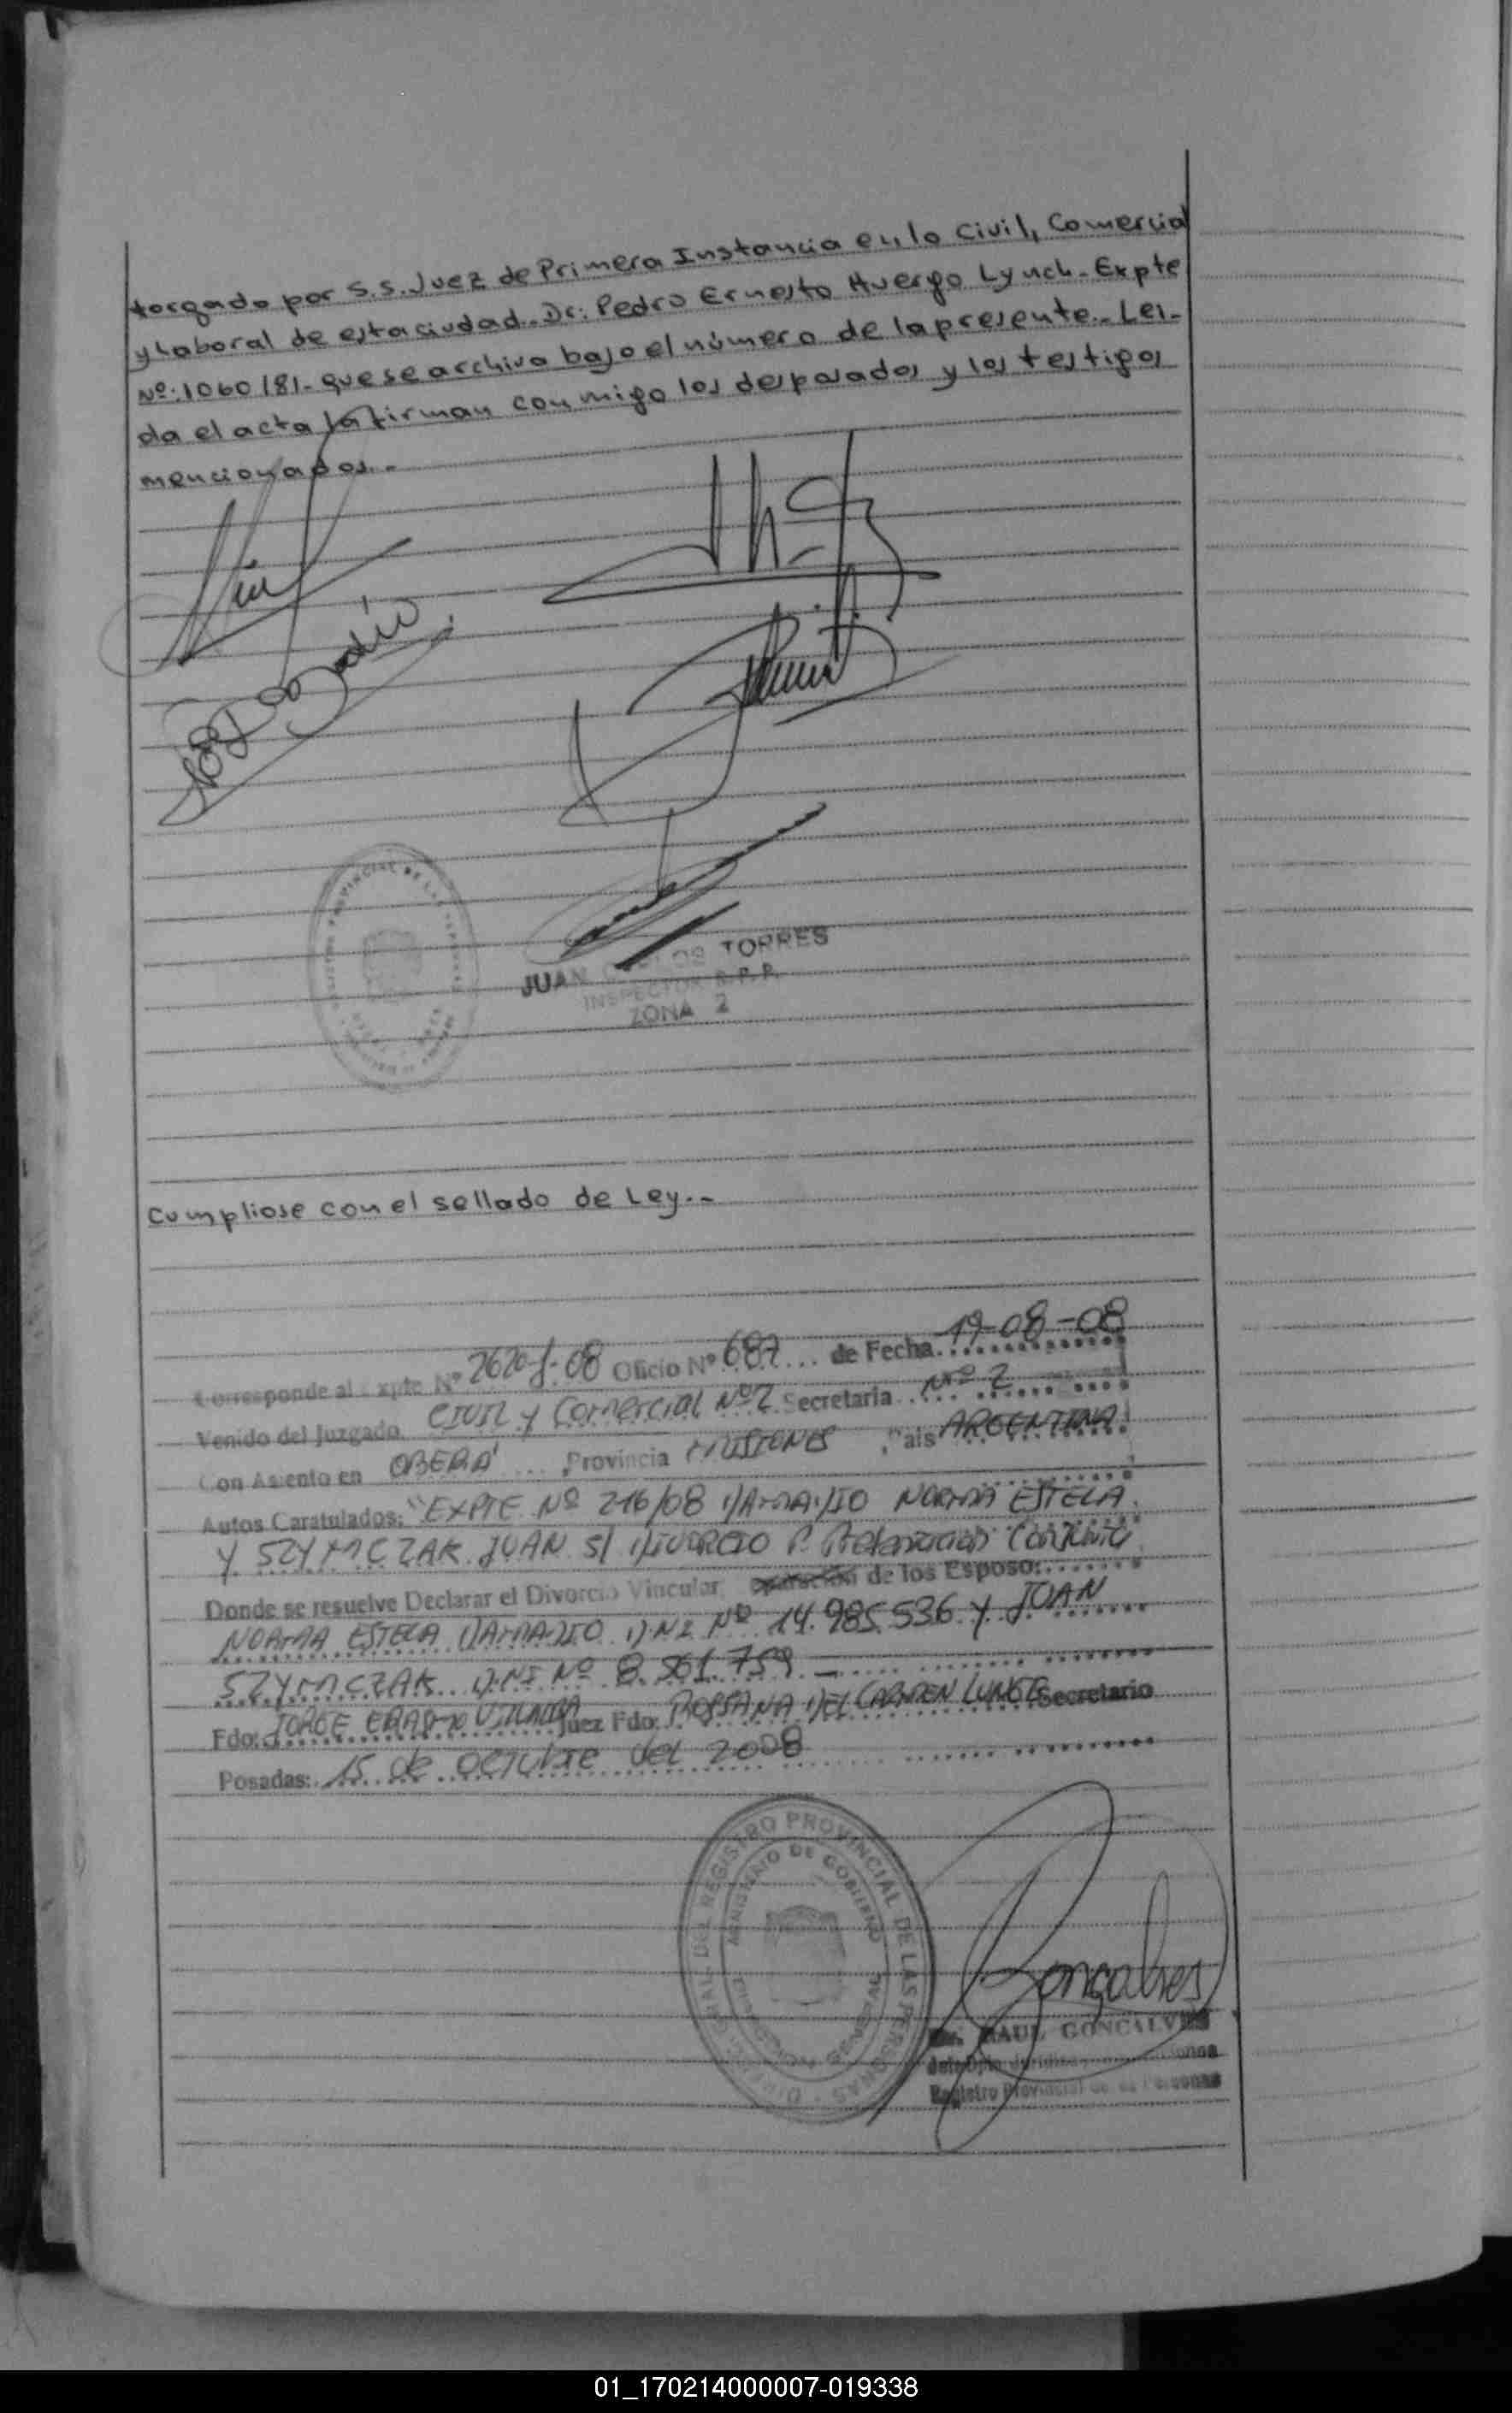 torgado por S.S. Juez de Primera Instancia en lo Civil, Comercial
y Laboral de esta ciudad.- Dr: Pedro Ernesto Huergo Lynch.- Expte
Nº: 1060/81.- que se archiva bajo el número de la presente.- Lei-
da el acta la firman con migo los desposados y los testigos
mencionados.-
JUAN CARLOS TORRES
INSPECTOR R.P.P.
ZONA 2
Cumpliose con el sellado de Ley.-
Corresponde al Expte Nº 2620-J-08 Oficio Nº 687 de Fecha 19-08-08
Venido del Juzgado CIVIL y Comercial Nº 2 Secretaria Nº 2
Con Asiento en OBERA' Provincia MISIONES Pais ARGENTINA
Autos Caratulados: "EXPTE Nº 216/08 DAMADIO NORMA ESTELA
Y SZYMCZAK JUAN S/ DIVORCIO P. Presentacion Conjunta
Donde se resuelve Declarar el Divorcio Vincular de los Esposo:
NORMA ESTELA DAMADIO DNI Nº 14.985.536 Y JUAN
SZYMCZAK DNI Nº 8.561.759 -
Fdo: JORGE ERASMO Juez Fdo: ROSSANA DEL CARMEN Secretario
Posadas: 15 de OCTUBRE del 2008
DEL REGISTRO PROVINCIAL DE LAS PERSONAS
MINISTERIO DE GOBIERNO
Gonçalves
Dr. RAUL GONCALVES
Registro Provincial de las Personas
01_170214000007-019338